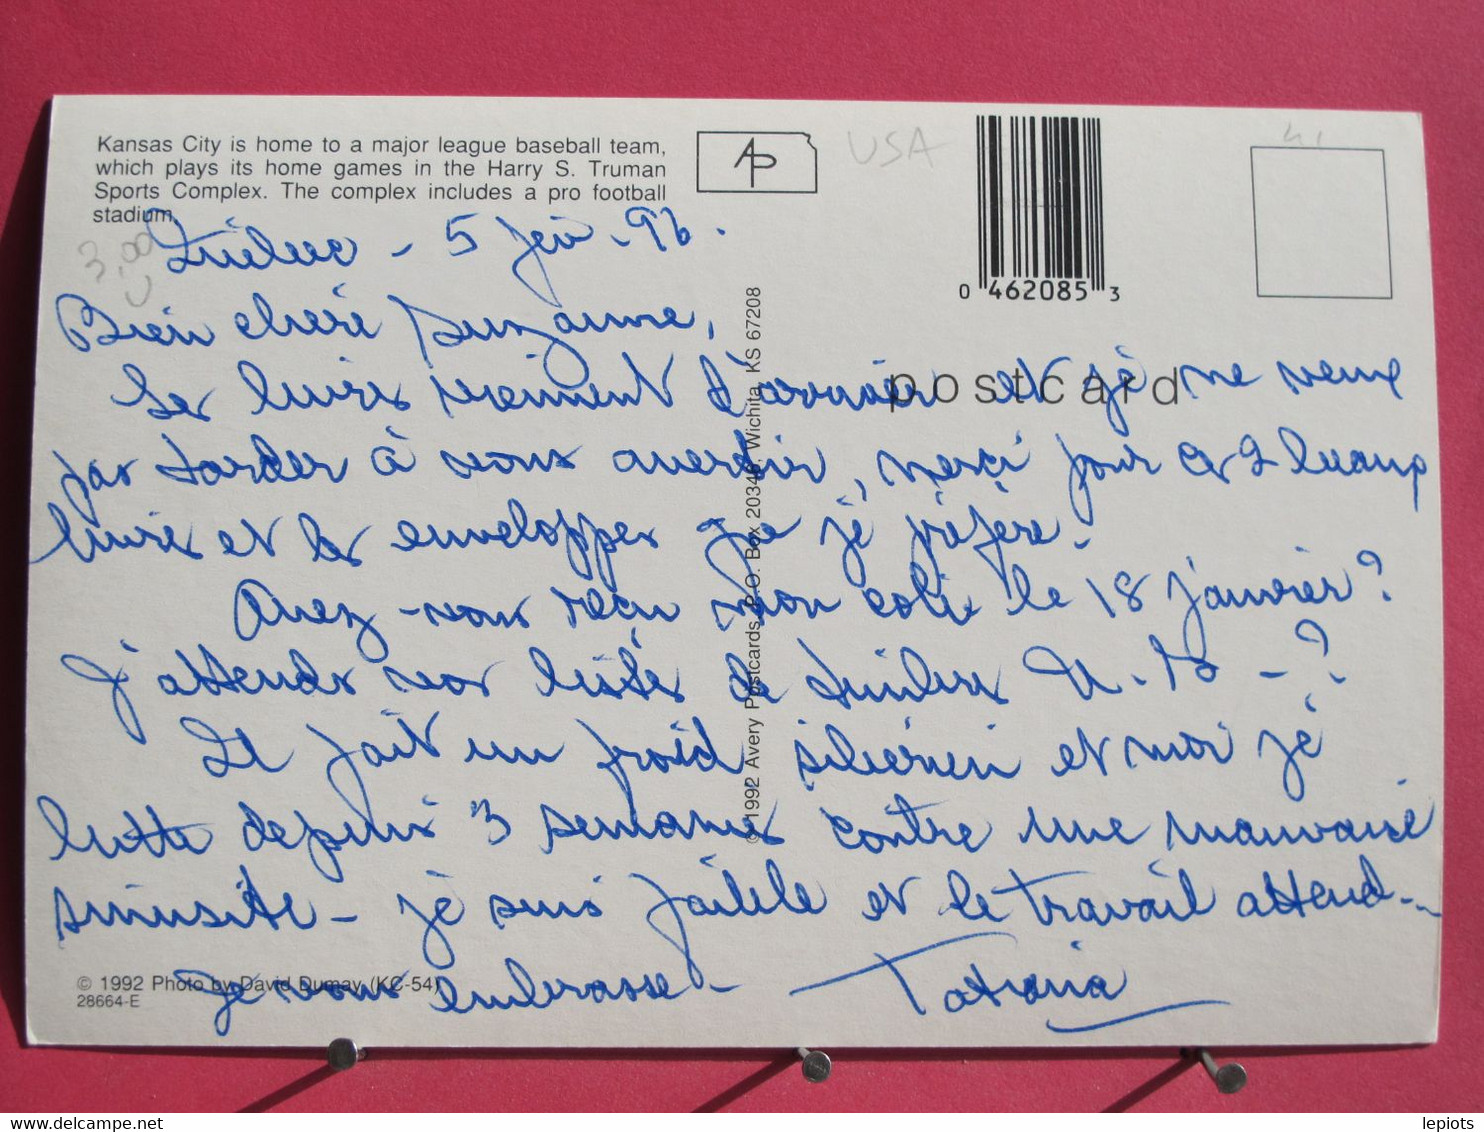 Kansas City is home to a major league baseball team,
which plays its home games in the Harry S. Truman
Sports Complex. The complex includes a pro football
stadium.
AP
USA
0 462085 3
3,00
U
postcard
© 1992 Avery Postcards, P.O. Box 20346, Wichita, KS 67208
- 5 fév - 96.
Bien chère Suzanne,
Les livres viennent d'arriver et je ne veux
pas tarder à vous avertir, merci pour ces 2 beaux
livres et les enveloppes que je préfère.
Avez-vous reçu mon colis le 18 janvier?
J'attends vos listes de timbres - ?
Il fait un froid sibérien et moi je
lutte depuis 3 semaines contre une mauvaise
sinusite - je suis faible et le travail attend...
Je vous embrasse - Tatiana
© 1992 Photo by David Dumay (KC-54)
28664-E
www.delcampe.net
lepiots